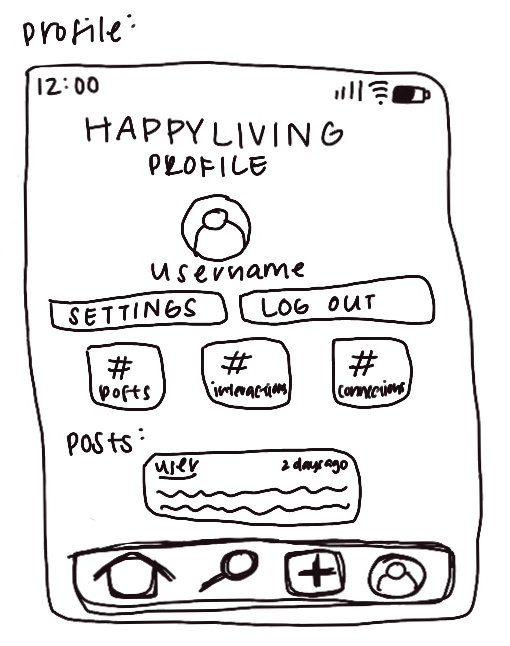 profile:
12:00
HAPPYLIVING
PROFILE
username
SETTINGS LOG OUT
# # #
posts interactions connections
posts:
user 2 days ago